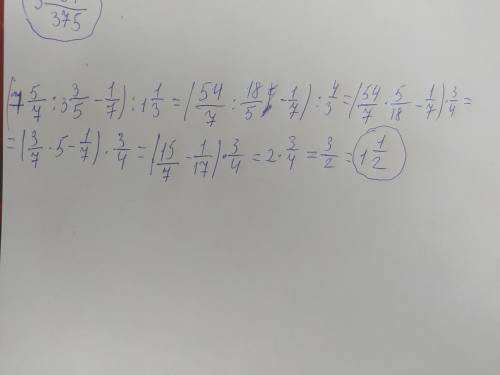 375
(7 5/7 : 3 3/5 - 1/7) : 1 1/3 = (54/7 : 18/5 - 1/7) : 4/3 = (54/7 · 5/18 - 1/7) · 3/4 =
= (3/7 · 5 - 1/7) · 3/4 = (15/7 - 1/17) · 3/4 = 2 · 3/4 = 3/2 = 1 1/2